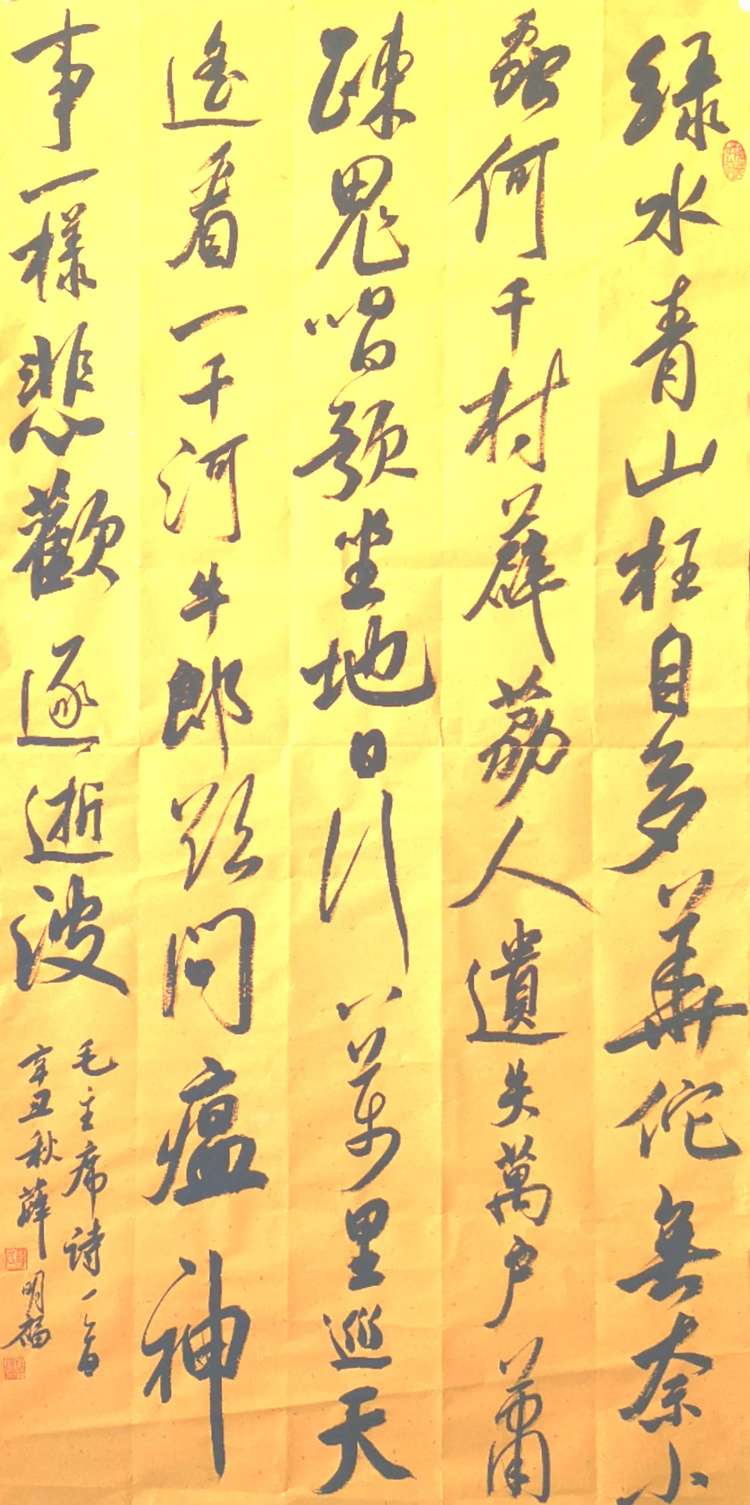 绿水青山枉自多華佗無奈小
蟲何千村薜荔人遺失萬户蕭
疎鬼唱歌坐地日行八萬里巡天
遥看一千河牛郎欲問瘟神
事一樣悲歡逐逝波
毛主席诗一首
辛丑秋薛明福